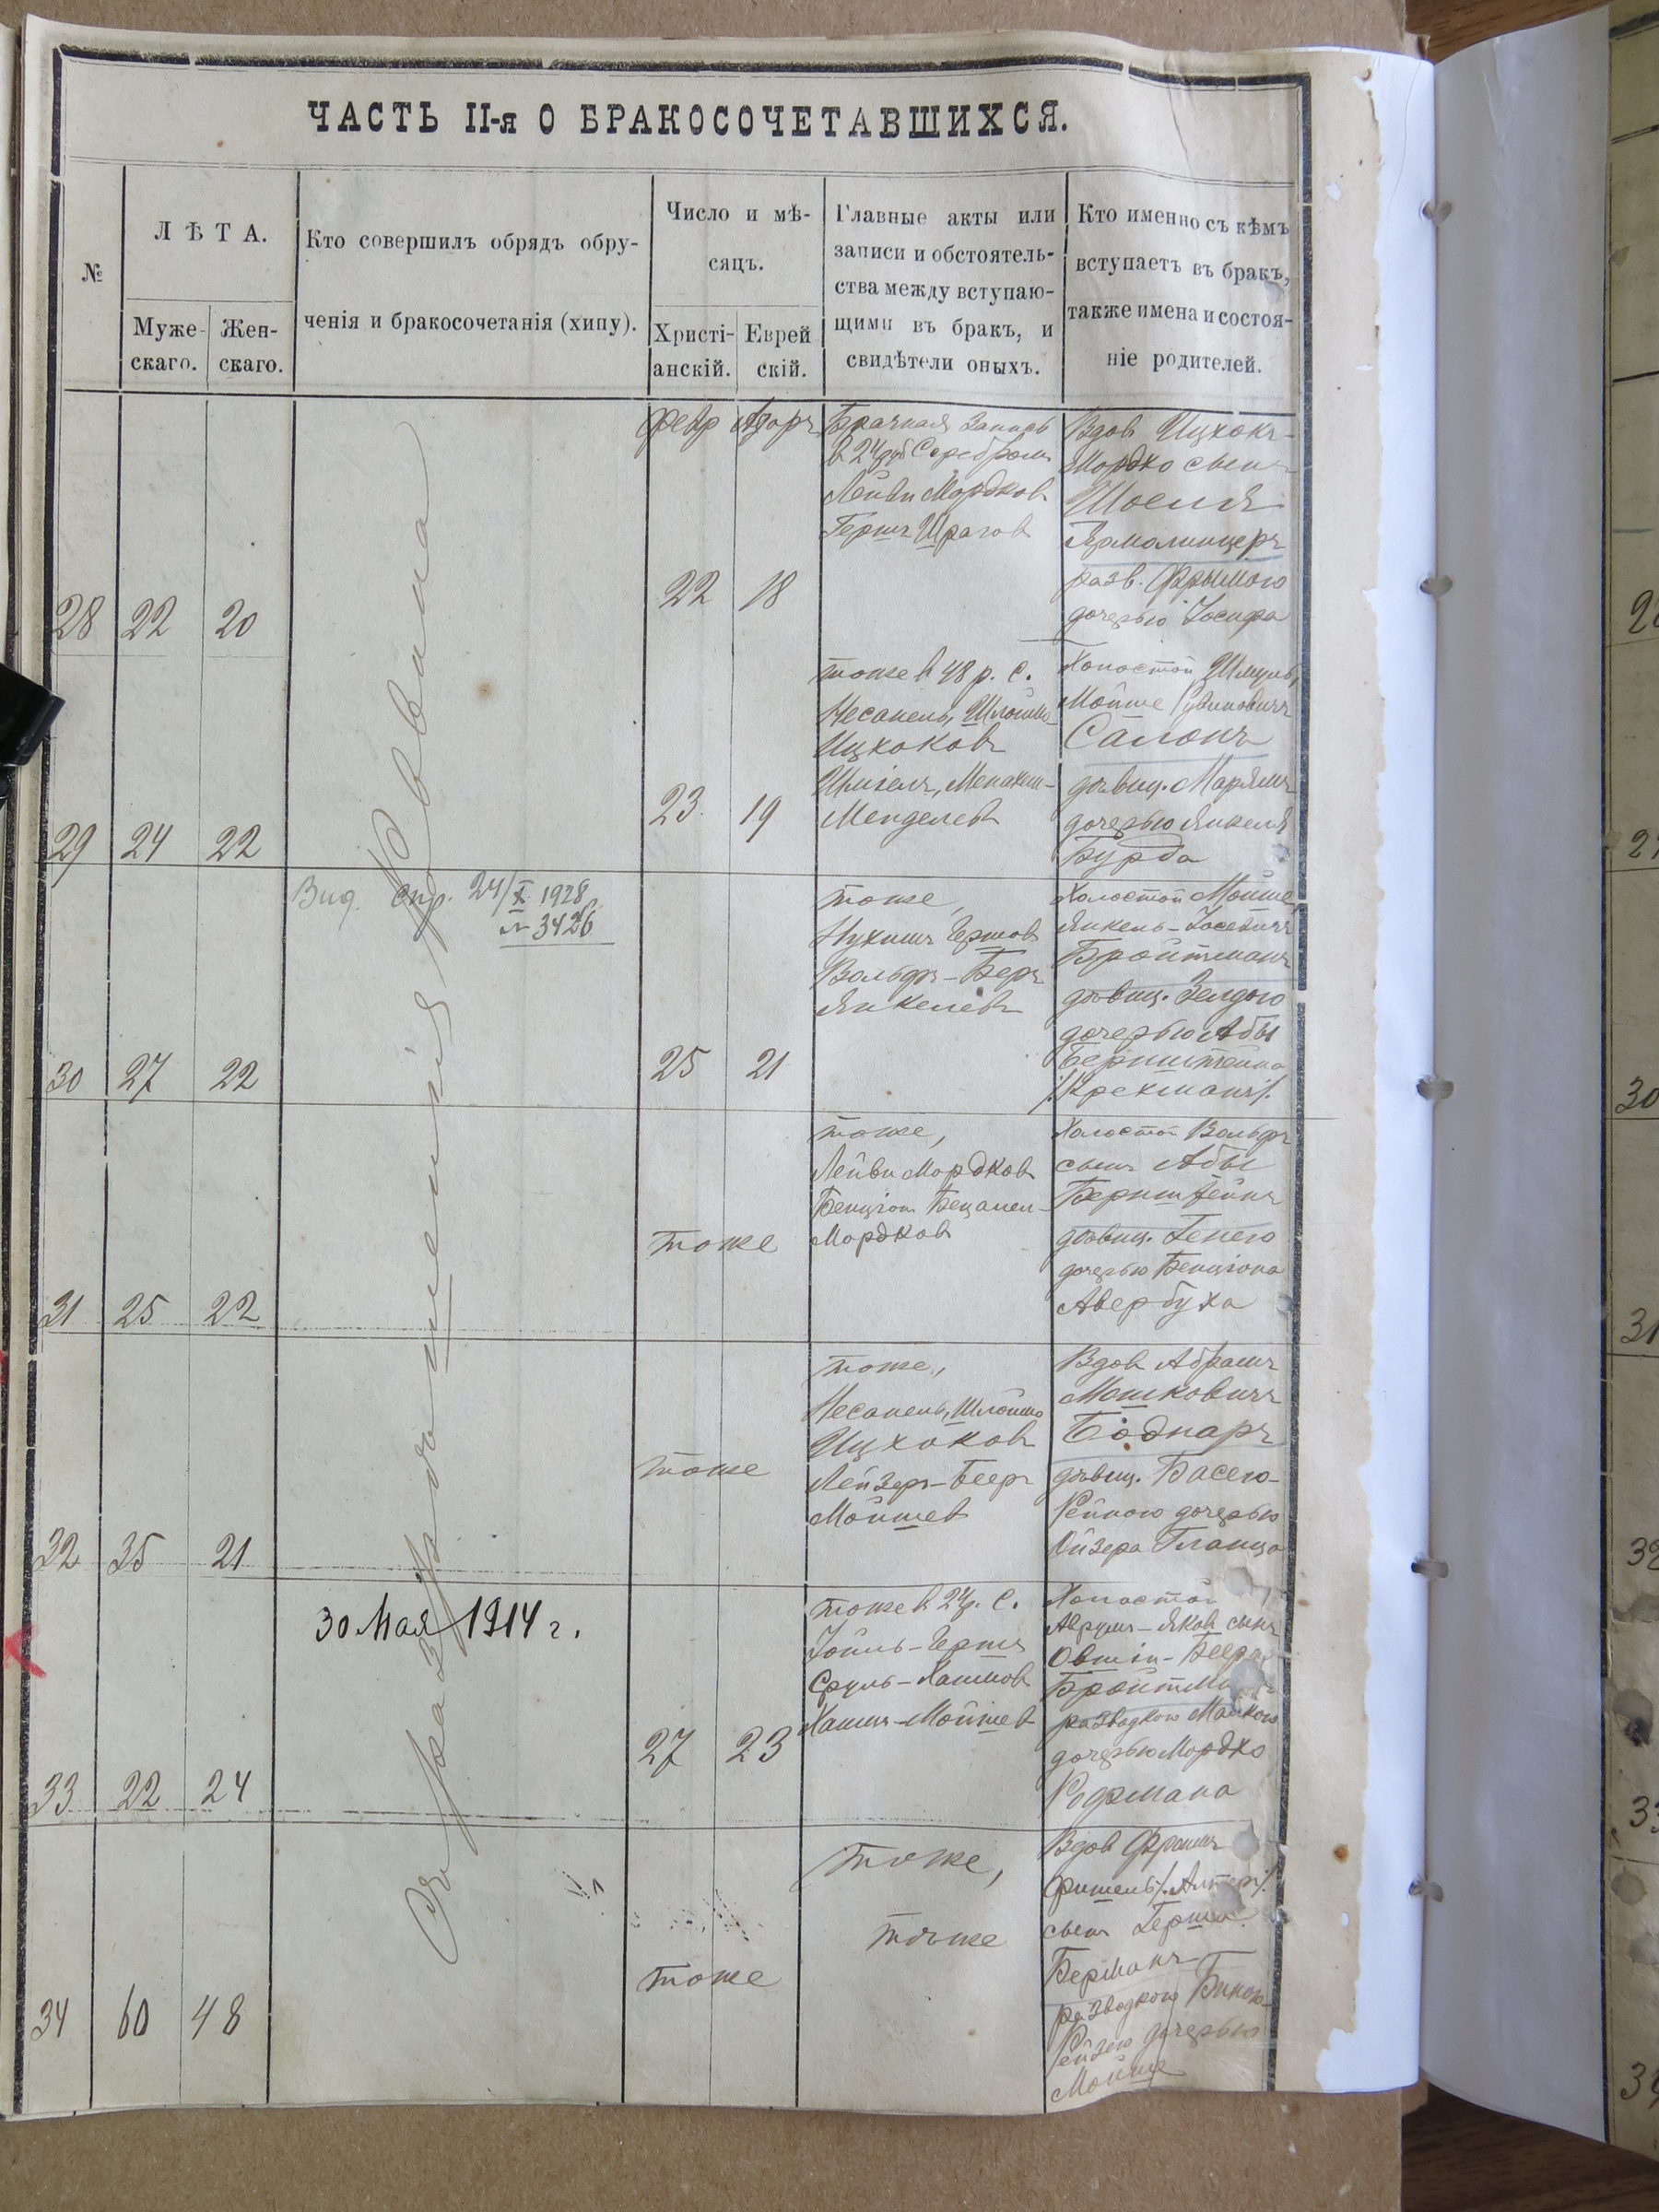 ЧАСТЬ II-я О БРАКОСОЧЕТАВШИХСЯ.
№
ЛѢТА.
Муже-
скаго.
Жен-
скаго.
Кто совершилъ обрядъ обру-
ченія и бракосочетанія (хипу).
Число и мѣ-
сяцъ.
Христі-
анскій.
Еврей
скій.
Главные акты или
записи и обстоятель-
ства между вступаю-
щими въ бракъ, и
свидѣтели оныхъ.
Кто именно съ кѣмъ
вступаетъ въ бракъ,
также имена и состоя-
ніе родителей.
28 22 20
Февр Адаръ
22 18
Брачная запись
в 24 руб Серебром
Лейви Мордков
Гершъ Шрагов
Вдов Ицхокъ-
Мордко сынъ
Шоеля
Ярмолинцеръ
разв. Фрымою
дочерью Іосифа
29 24 22
23. 19
тоже в 48 р. С.
Несанель, Шлойма
Ицхоков
Шигель, Менахем-
Менделев
Холостой Шмуль,
Мойше Рувиновичъ
Салонъ
дѣвиц. Маріямъ
дочерью Янкеля
Бурда
Вид. спр. 24/X 1928
№ 3426
30 27 22
25 21
тоже,
Нухимъ Гершов
Вольфъ-Беръ
Янкелев
Холостой Мойше
Янкель-Іосевичъ
Бройтманъ
дѣвиц. Зелдою
дочерью Абы
Бернштейна
/Крехманъ/.
31 25 22
тоже
тоже,
Лейви Мордков
Бенціон Бецалел-
Мордков
Холостой Вольфъ
сынъ Абы
Бернштейнъ
дѣвиц. Генею
дочерью Бенціона
Авербуха
32 35 21
тоже
тоже,
Несанель, Шлойма
Ицхоков
Лейзеръ-Бееръ
Мойшев
Вдов Абрамъ
Мошковичъ
Боднаръ
дѣвиц. Басею-
Рейзою дочерью
Ойзера Гланца
30 Мая 1914 г.
33 22 24
27 23
тоже в 24 р. С.
Іойль-Гершъ
Сруль-Хаимов
Хаимъ-Мойшев
Холостой
Аврумъ-Яков сынъ
Овшія-Беера
Бройтма
разводкою Малкою
дочерью Мордко
Рофмана
34 60 48
тоже
тоже,
тоже
Вдов Фроимъ
Фишель /Алтеръ/.
сынъ Герша
Берманъ
разводкою
Рейзею дочерью
Мойше
Ровина